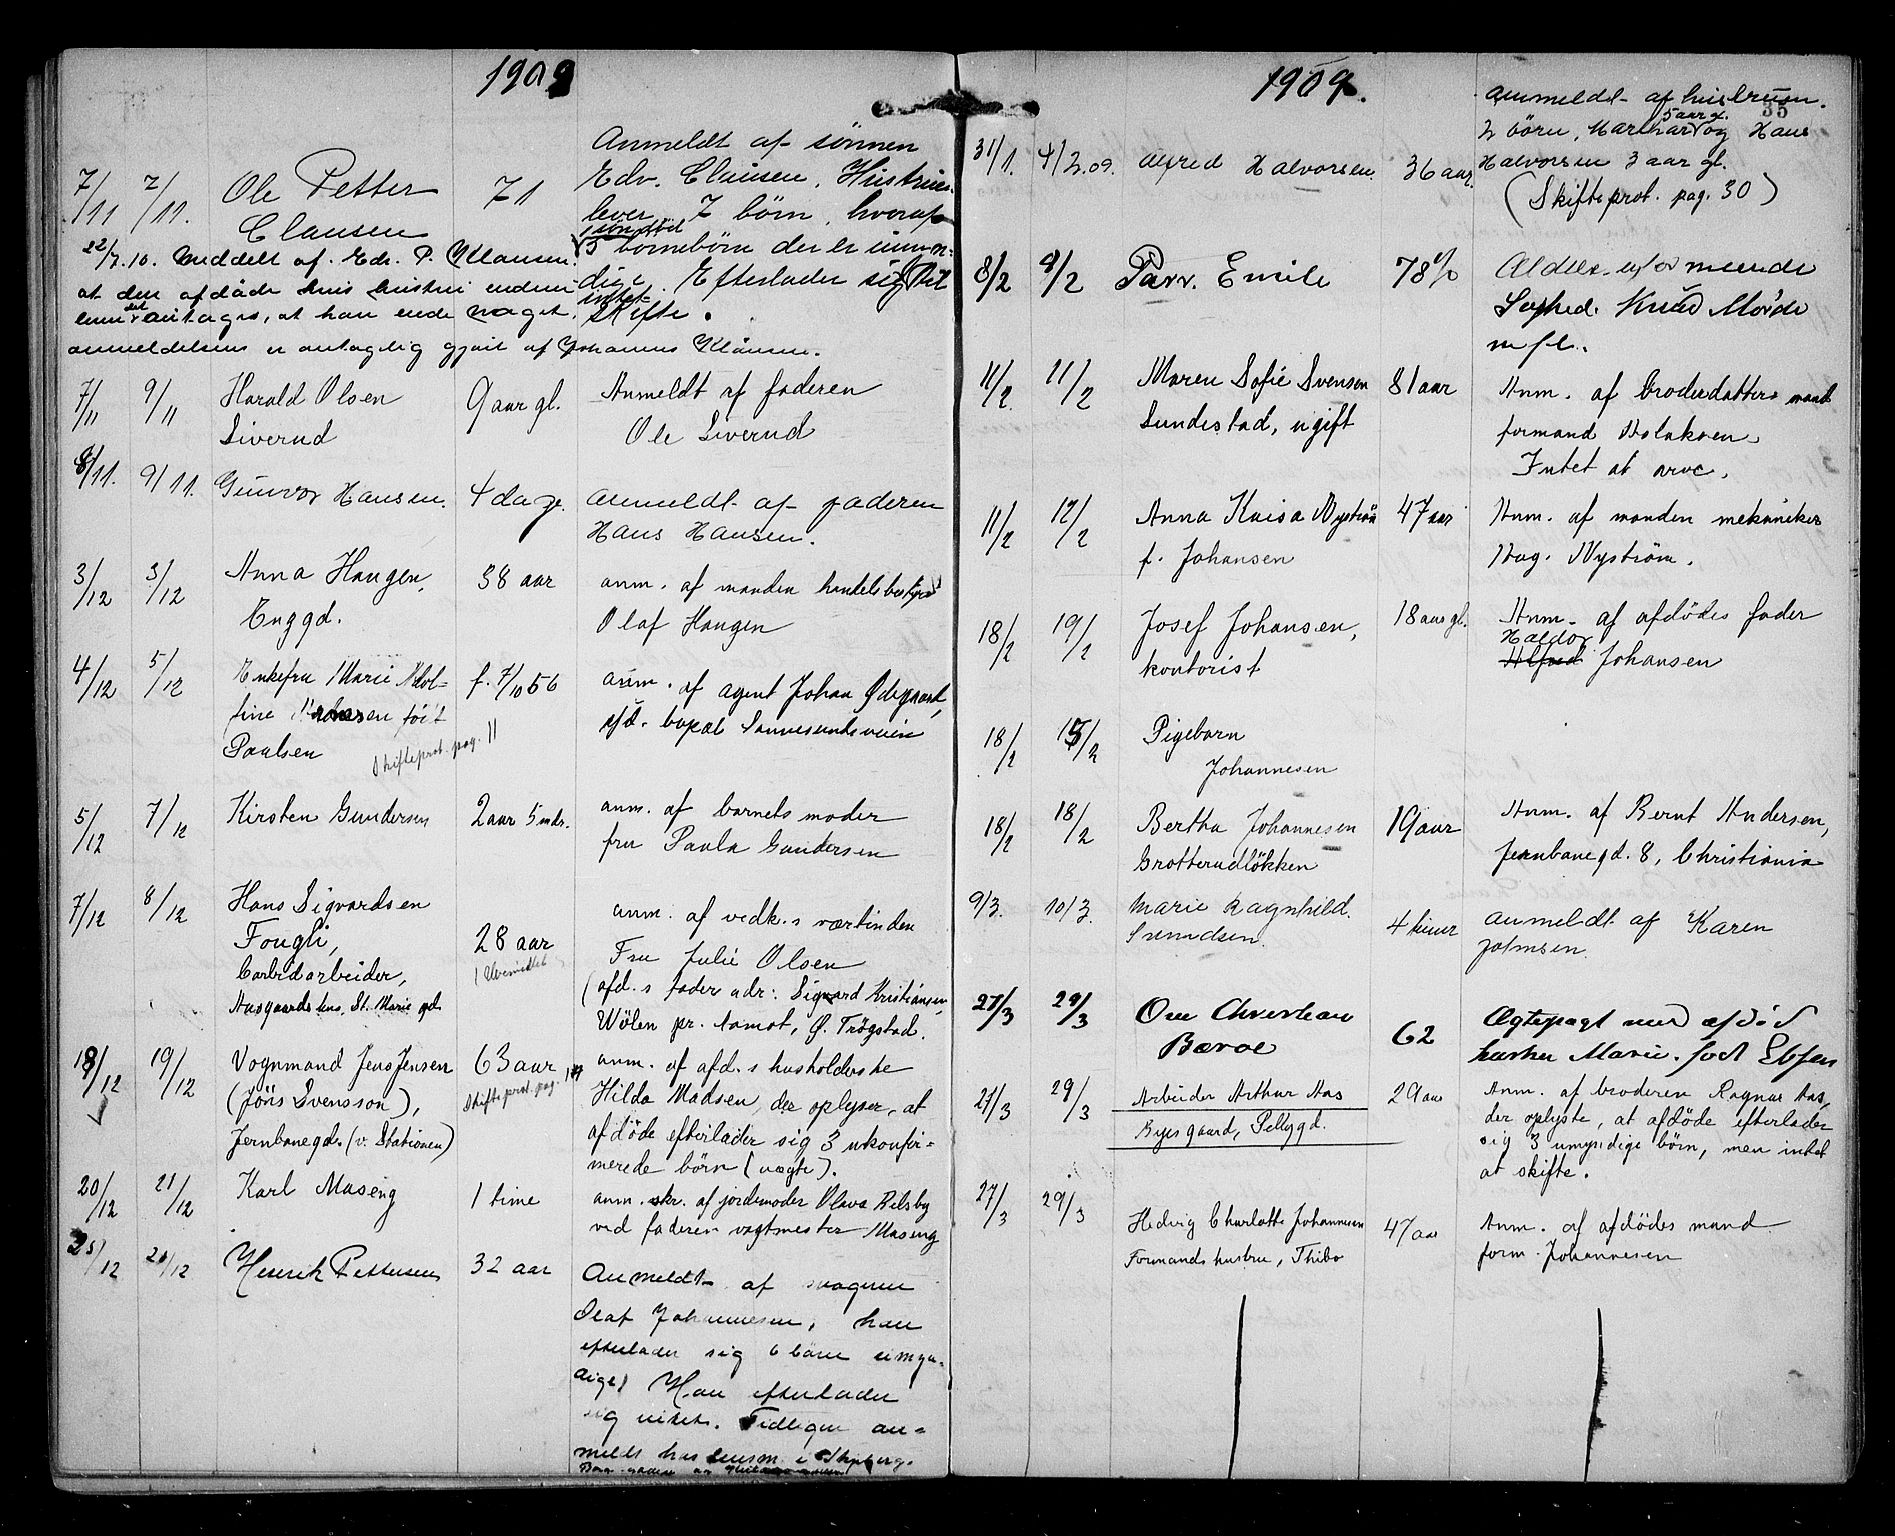 1909
Anmeldt af sønnen
Edv. Clausen. Hustruen
7/11 7/11. Ole Petter 71
lever. 7 børn, hvoraf
Clausen
5 børnebørn der er umyn-
22/7.10. Meddelt af Edv. P. Klausen.
dige. Efterlader sig
at den afdøde hans hustru
intet
antages, at han noget. skifte.
anmeldelsen er antagelig gjort af Johannes Klausen.
7/11 9/11 Harald Olsen 9 aar gl. Anmeldt af faderen
Siverud Ole Siverud
8/11. 9/11. Gunvor Hansen. 4 dage. Anmeldt af faderen
Hans Hansen.
3/12 3/12 Anna Haugen, 38 aar anm. af manden handelsbestyrer
Enggd. Olaf Haugen
4/12 5/12 Enkefru Marie f. 7/10 56 anm. af agent Johan Ødegaard,
fine født
Paulsen Skifteprot. pag. 11
s/d. bopæl Sannesundsveien
5/12 7/12 Kirsten Gundersen 2 aar 5 mdr. anm. af barnets moder
fru Paula Gundersen
7/12 8/12 Hans Sigvardsen anm. af vedk.s værtinden
Fougli, 28 aar Fru Julie Olsen
Carbidarbeider, (afd.s fader adr: Sigvard Kristiansen,
Aasgaards hus, St. Marie gd. Wölen pr. Aamot, Ø. Trøgstad.
18/12 19/12 Vognmand Jens Jensen 63 aar anm. af afd.s husholderske
(Jöns Svensson), Skifteprot. pag. Hilda Madsen, der oplyser, at
Jernbanegd. (v. Stationen) afdøde efterlader sig 3 ukonfir-
merede børn (uægte).
20/12 21/12 Karl Maseng 1 time anm. skr. af jordemoder Olava Rilsby
ved faderen vagtmester Maseng
25/12 28/12 Henrik Pettersen 32 aar Anmeldt af svogeren
Olaf Johannesen, han
efterlader sig 6 børn umyn-
dige. Han efterlader
sig intet. Tidligere an-
meldt hos lensm. i Skjeberg.
1909.
35
Anmeldt af hustruen.
5 aar gl.
2 børn, Marthar og Hans
31/1. 4/2.09. Alfred Halvorsen. 36 aar. Halvorsen 3 aar gl.
(Skifteprot. pag. 30)
8/2 8/2 Parr. Emile 78 %
Sagfød. Knud Mörde
m fl.
11/2 11/2 Maren Sofie Svensen 81 aar Anm. af broderdatters mand
Sundestad, ugift formand Aslaksen.
Intet at arve.
11/2 12/2 Anna Kaisa Nyström 47 aar Anm. af manden mekaniker
f. Johansen Aug. Nyström.
18/2 19/2 Josef Johansen, 18 aar gl. Anm. af afdødes fader
Haldor
kontorist Alfred Johansen
18/2 15/2 Pigebarn
Johannesen
18/2 18/2 Bertha Johannesen 19 aar Anm. af Bernt Andersen,
Grotterudløkken Jernbanegd. 8, Christiania
9/3. 10/3. Marie Ragnhild. 4 timer Anmeldt af Karen
Svendsen. Johnsen.
27/3 29/3 Ove Christian 62 Ægtepagt med afdød
Barve hustru Marie. født Ebsen
27/3 29/3 Arbeider Arthur Aas 29 aar Anm. af broderen Ragnar Aas,
Byes gaard, Pellygd. der oplyste, at afdøde efterlader
sig 3 umyndige børn, men intet
at skifte.
27/3 29/3 Hedvig Charlotte Johannesen 47 aar Anm. af afdødes mand
Formands hustru, Thibo form. Johannesen